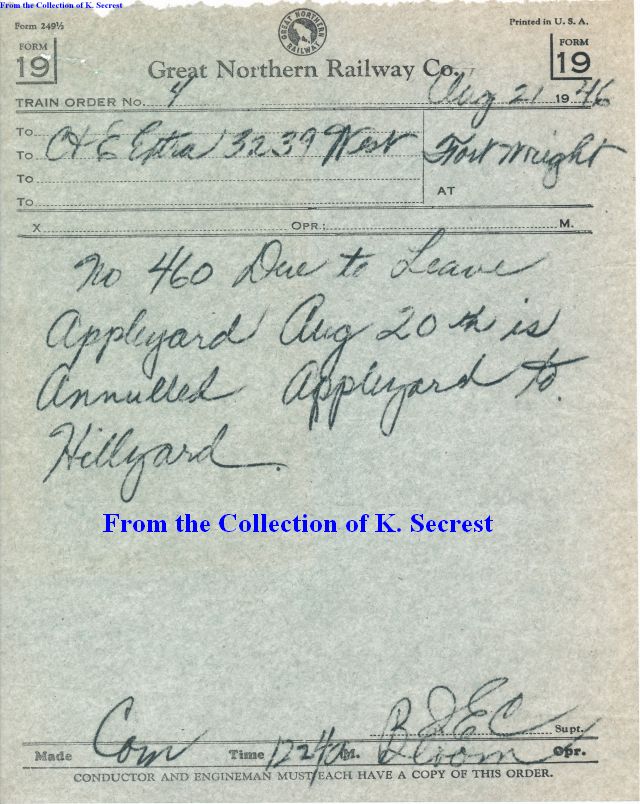 From the Collection of K. Secrest
Form 249½
Printed in U. S. A.
GREAT NORTHERN RAILWAY
FORM 19
FORM 19
Great Northern Railway Co.
TRAIN ORDER No. 4 Aug 21 1946
To
To C+E Extra 3239 West Fort Wright
To
To AT
X OPR.: M.
No 460 Due to Leave
Appleyard Aug 20th is
Annulled Appleyard to
Hillyard.
From the Collection of K. Secrest
Supt.
Made Com Time M. Bloom Opr.
CONDUCTOR AND ENGINEMAN MUST EACH HAVE A COPY OF THIS ORDER.